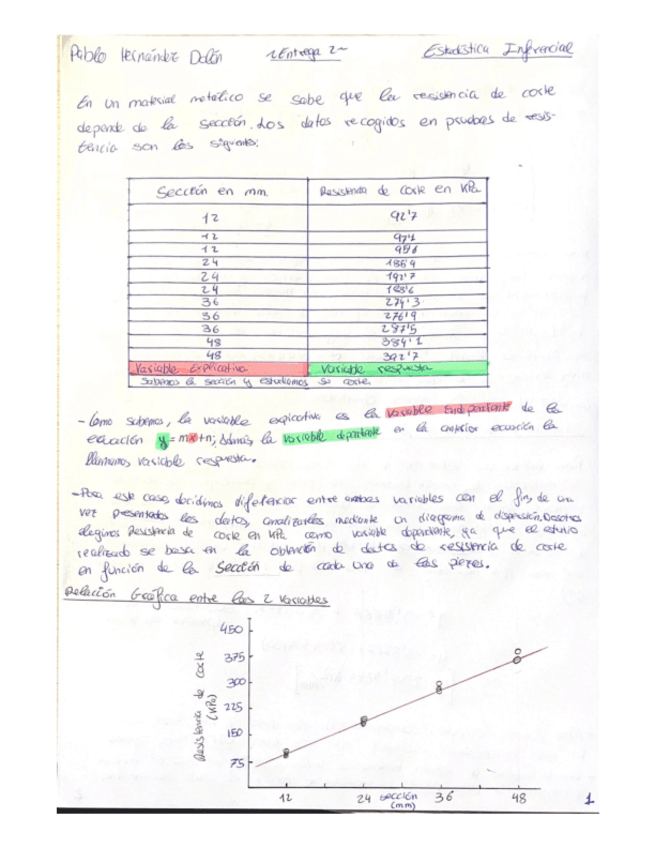 Pablo Hernández Dolón ~Entrega 2~ Estadística Inferencial
En un material metálico se sabe que la resistencia de corte
depende de la sección. Los datos recogidos en pruebas de resis-
tencia son los siguientes:
Sección en mm. Resistencia de corte en KPa
12 92'7
12 97'1
12 95'6
24 185'9
24 192'7
24 188'6
36 274'3
36 276'9
36 287'5
48 384'1
48 392'7
Variable Explicativa Variable respuesta
Sabemos la sección y estudiamos se corte.
- Como sabemos, la variable explicativa es la variable independiente de la
ecuación y = mx+n; además la variable dependiente en la anterior ecuación la
llamamos variable respuesta.
- Para este caso, decidimos diferenciar entre ambas variables con el fin, de una
vez presentados los datos, analizarlos mediante un diagrama de dispersión. Nosotros
elegimos Resistencia de corte en KPa como variable dependiente, ya que el estudio
realizado se basa en la obtención de datos de resistencia de corte
en función de la Sección de cada una de las piezas.
Relación Gráfica entre las 2 Variables
Resistencia de corte
(KPa)
450
375
300
225
150
75
12 24 36 48
sección
(mm)
1